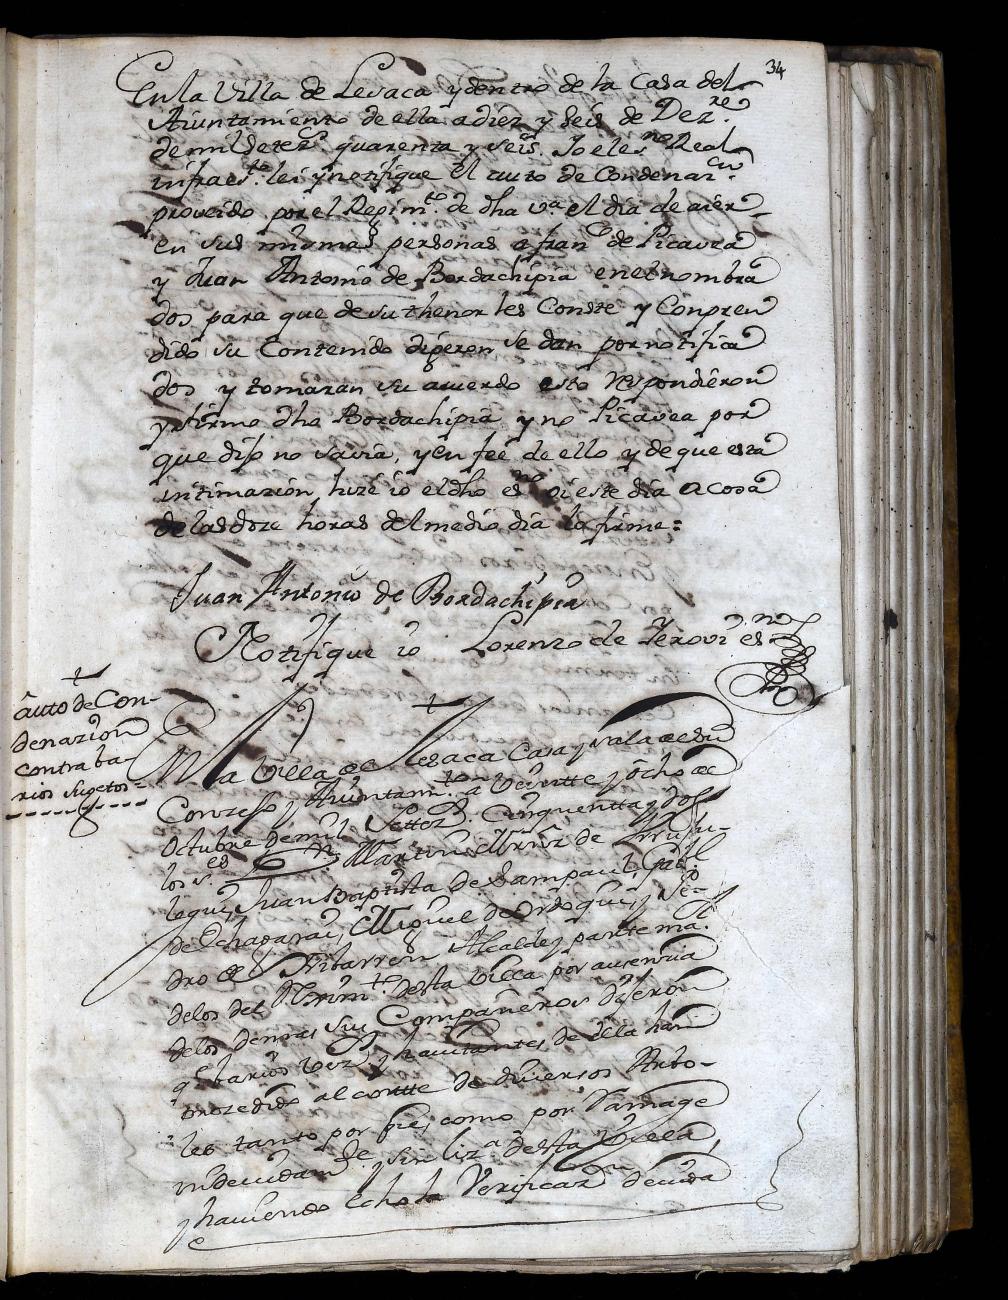 34
En la Villa de Lesaca y dentro de la Casa del
Aiuntamiento de ella a diez y seis de Dez.re
de mil setez.s quarenta y seis Yo el es.no Real
infraes.to lei y notifique el auto de Condenaz.on
proveido por el Regim.to de dha v.a el dia de aier
en sus mismas personas a fran.co de Picavea
y Juan Antonio de Bordachipia en el nombra
dos para que de su thenor les Conste y Conpren
dido su Contenido dijeron se dan por notifica
dos y tomaran su acuerdo esto respondieron
y firmo dho Bordachipia y no Picavea por
que dijo no savia, y en fee de ello y de que esta
intimazion hize io el dho es.no oi este dia a cosa
de las doze horas del medio dia lo firme =
Juan Antonio de Bordachipia
Notifique io Lorenzo de Yerovi es.no
auto de Con-
denazion
contra ba-
rios sugetos=
En la Villa de Lesaca Casa y Sala de su
Conzejo y Aiuntam.to a Veintte y ocho de
octubre de mil Settez.s Cinquentta y dos
los s.es Martin Mrñz de
legui, Juan Baptista de Sampaul, Gab.l
de Echaparai, Miguel de Ordoqui, y Pe-
dro de Alcalde y partte ma.r
de los del Regim.to desta Villa por ausencia
de los demas sus Compañeros dijeron
q.e barios vez.s y havitantes de ella han
prozedido al cortte de diversos Arbo-
les tanto por pie, como por Ramage
indevidam.te y sin liz.a desta Villa,
y haviendo echo la Verificaz.on devida